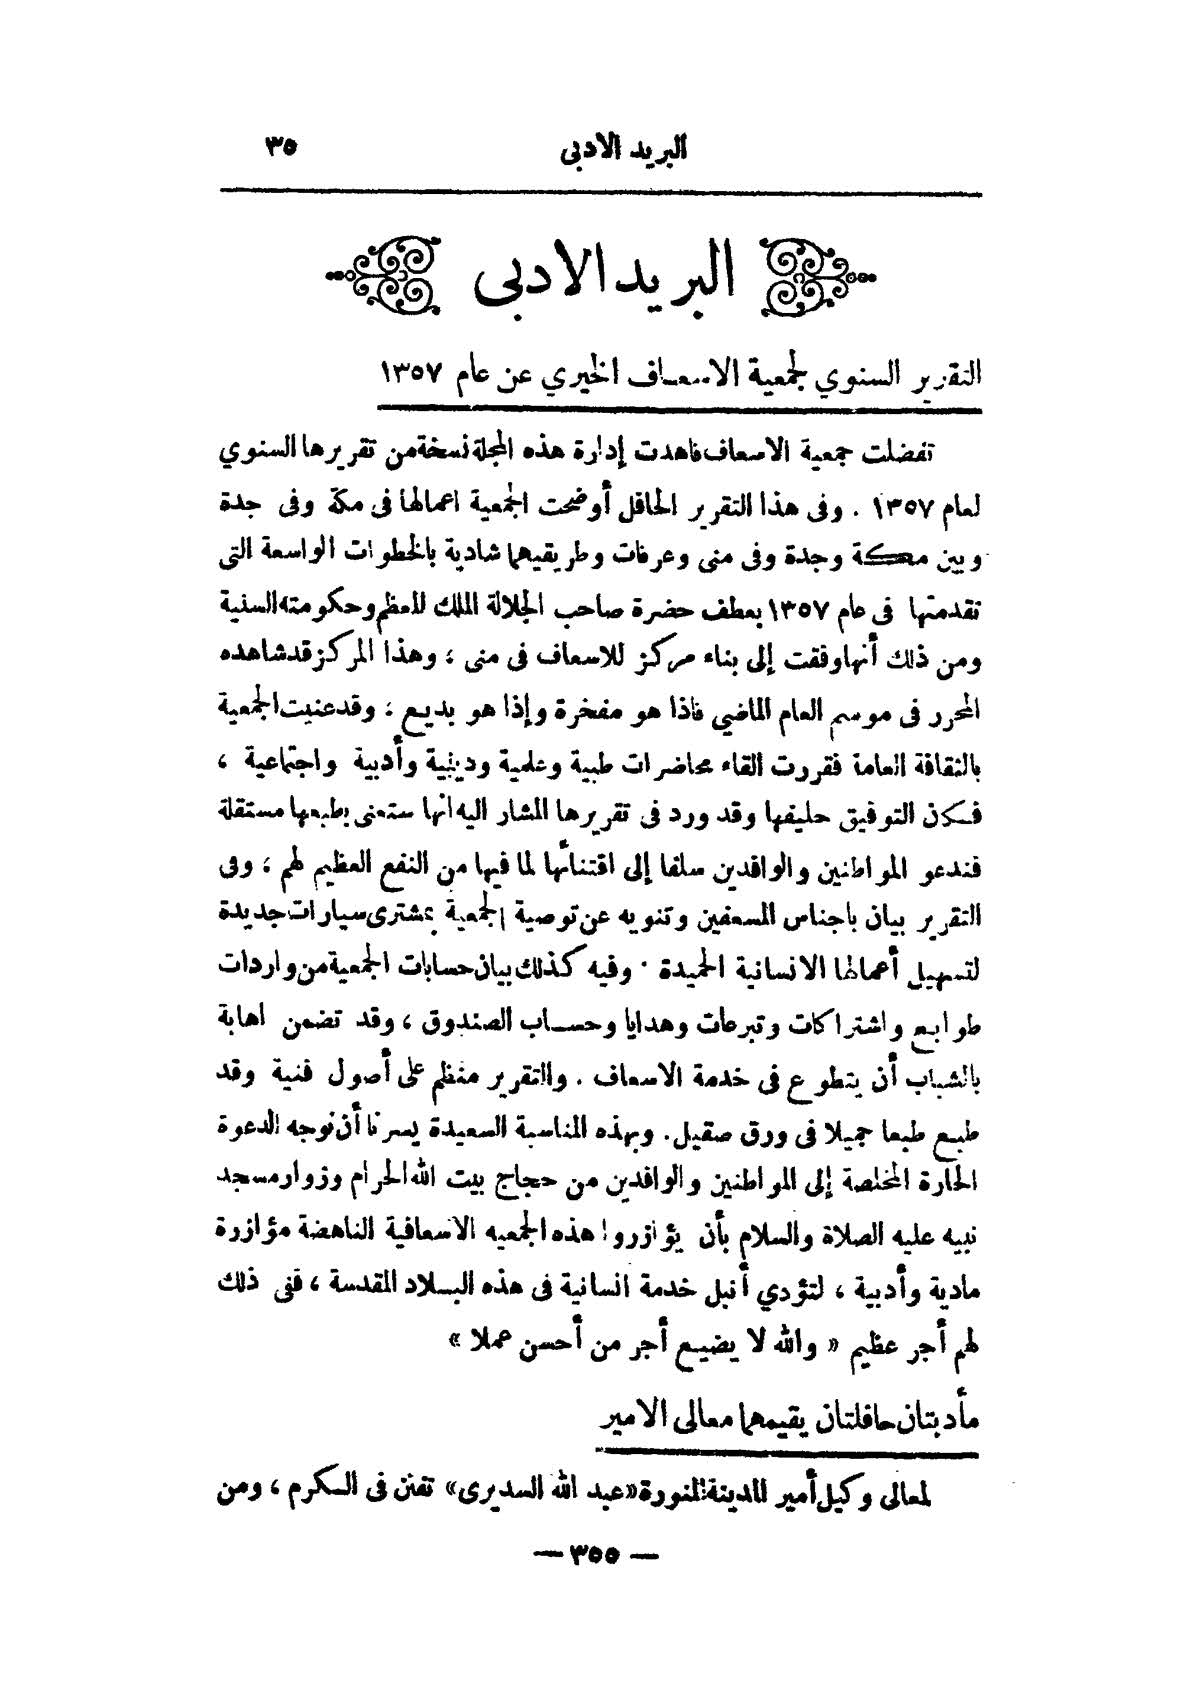 البريد الادبى ٣٥
البريد الادبى
التقرير السنوي لجمعية الاسعاف الخيري عن عام ١٣٥٧
تفضلت جمعية الاسعاف فاهدت إدارة هذه المجلة نسخة من تقريرها السنوي
لعام ١٣٥٧ . وفى هذا التقرير الحافل أوضحت الجمعية اعمالها فى مكة وفى جدة
وبين مكة وجدة وفى منى وعرفات وطريقيهما شادية بالخطوات الواسعة التى
تقدمتها فى عام ١٣٥٧ بعطف حضرة صاحب الجلالة الملك المعظم وحكومته السنية
ومن ذلك أنها وفقت إلى بناء مركز للاسعاف فى منى ، وهذا المركز قد شاهده
المحرر فى موسم العام الماضي فاذا هو مفخرة وإذا هو بديع ، وقد عنيت الجمعية
بالثقافة العامة فقررت القاء محاضرات طبية وعلمية ودينية وأدبية واجتماعية ،
فكان التوفيق حليفها وقد ورد فى تقريرها المشار اليه انها ستعنى بطبعها مستقلة
فندعو المواطنين والوافدين سلفا إلى اقتنائها لما فيها من النفع العظيم لهم ، وفى
التقرير بيان باجناس المسعفين وتنويه عن توصية الجمعية بمشترى سيارات جديدة
لتسهيل أعمالها الانسانية الحميدة . وفيه كذلك بيان حسابات الجمعية من واردات
طوابع واشتراكات وتبرعات وهدايا وحساب الصندوق ، وقد تضمن اهابة
بالشباب أن يتطوع فى خدمة الاسعاف . والتقرير منظم على أصول فنية وقد
طبع طبعا جميلا فى ورق صقيل . وبهذه المناسبة السعيدة يسرنا أن نوجه الدعوة
الحارة المخلصة إلى المواطنين والوافدين من حجاج بيت الله الحرام وزوار مسجد
نبيه عليه الصلاة والسلام بأن يؤازروا هذه الجمعيه الاسعافية الناهضة مؤازرة
مادية وأدبية ، لتؤدي أنبل خدمة انسانية فى هذه البلاد المقدسة ، ففى ذلك
لهم أجر عظيم « والله لا يضيع أجر من أحسن عملا »
مأدبتان حافلتان يقيمهما معالى الامير
لمعالى وكيل أمير المدينة المنورة «عبد الله السديرى» تفنن فى الكرم ، ومن
— ٣٥٥ —